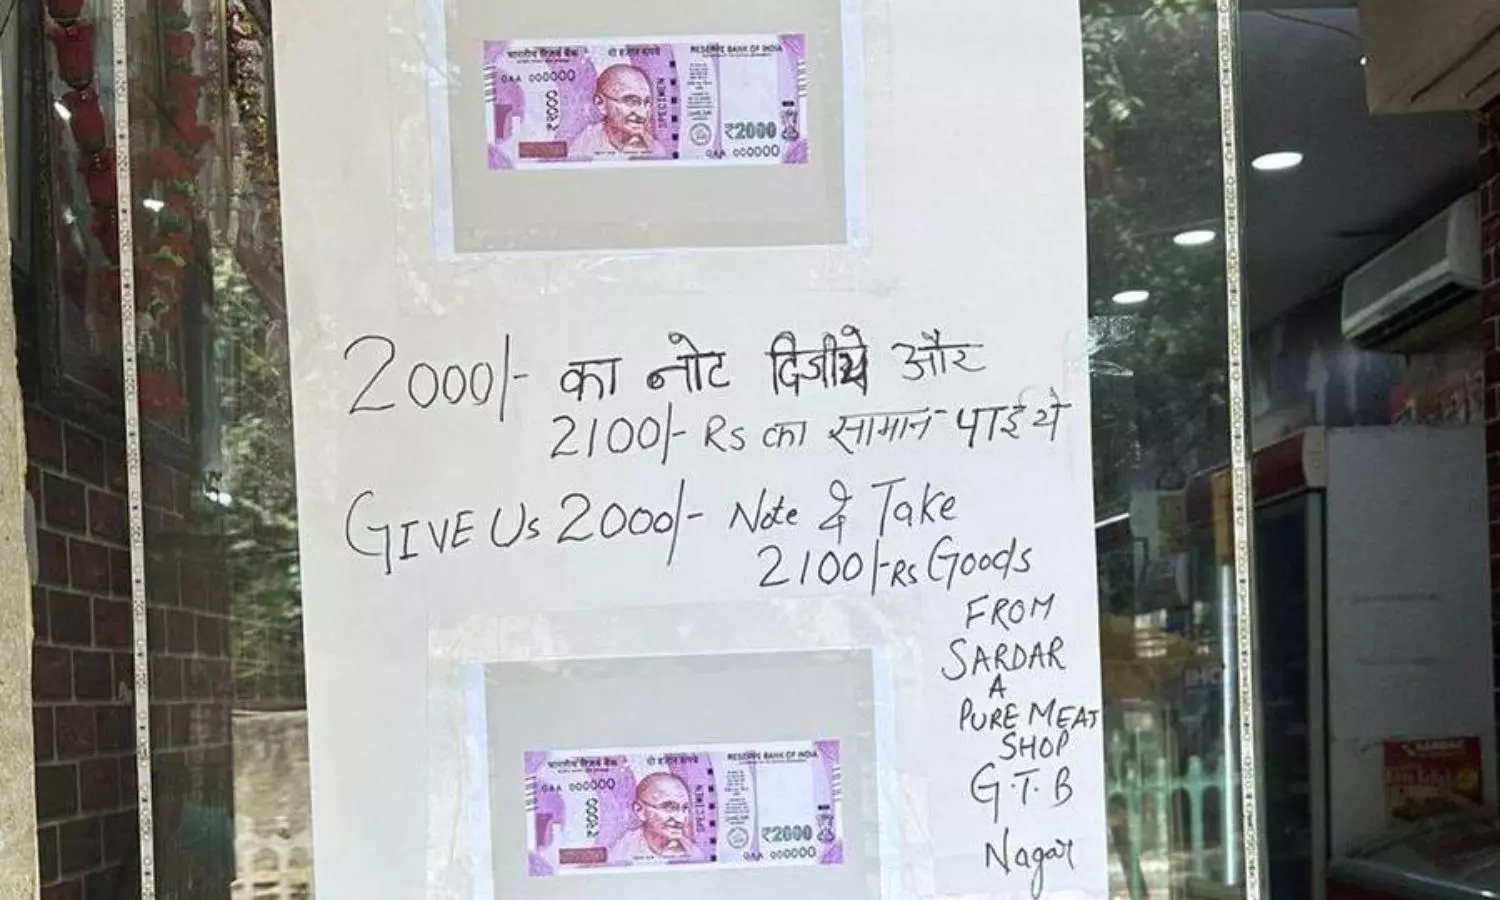 भारतीय रिज़र्व बैंक दो हज़ार रुपये RESERVE BANK OF INDIA
0AA 000000
₹२००० SPECIMEN
₹2000
0AA 000000
2000/- का नोट दिजीये और
2100/- Rs का सामान पाईये
GIVE Us 2000/- Note & Take
2100/-Rs Goods
FROM
SARDAR
A
PURE MEAT
SHOP
G.T.B
Nagar
भारतीय रिज़र्व बैंक दो हज़ार रुपये RESERVE BANK OF INDIA
0AA 000000
₹२००० SPECIMEN
₹2000
0AA 000000